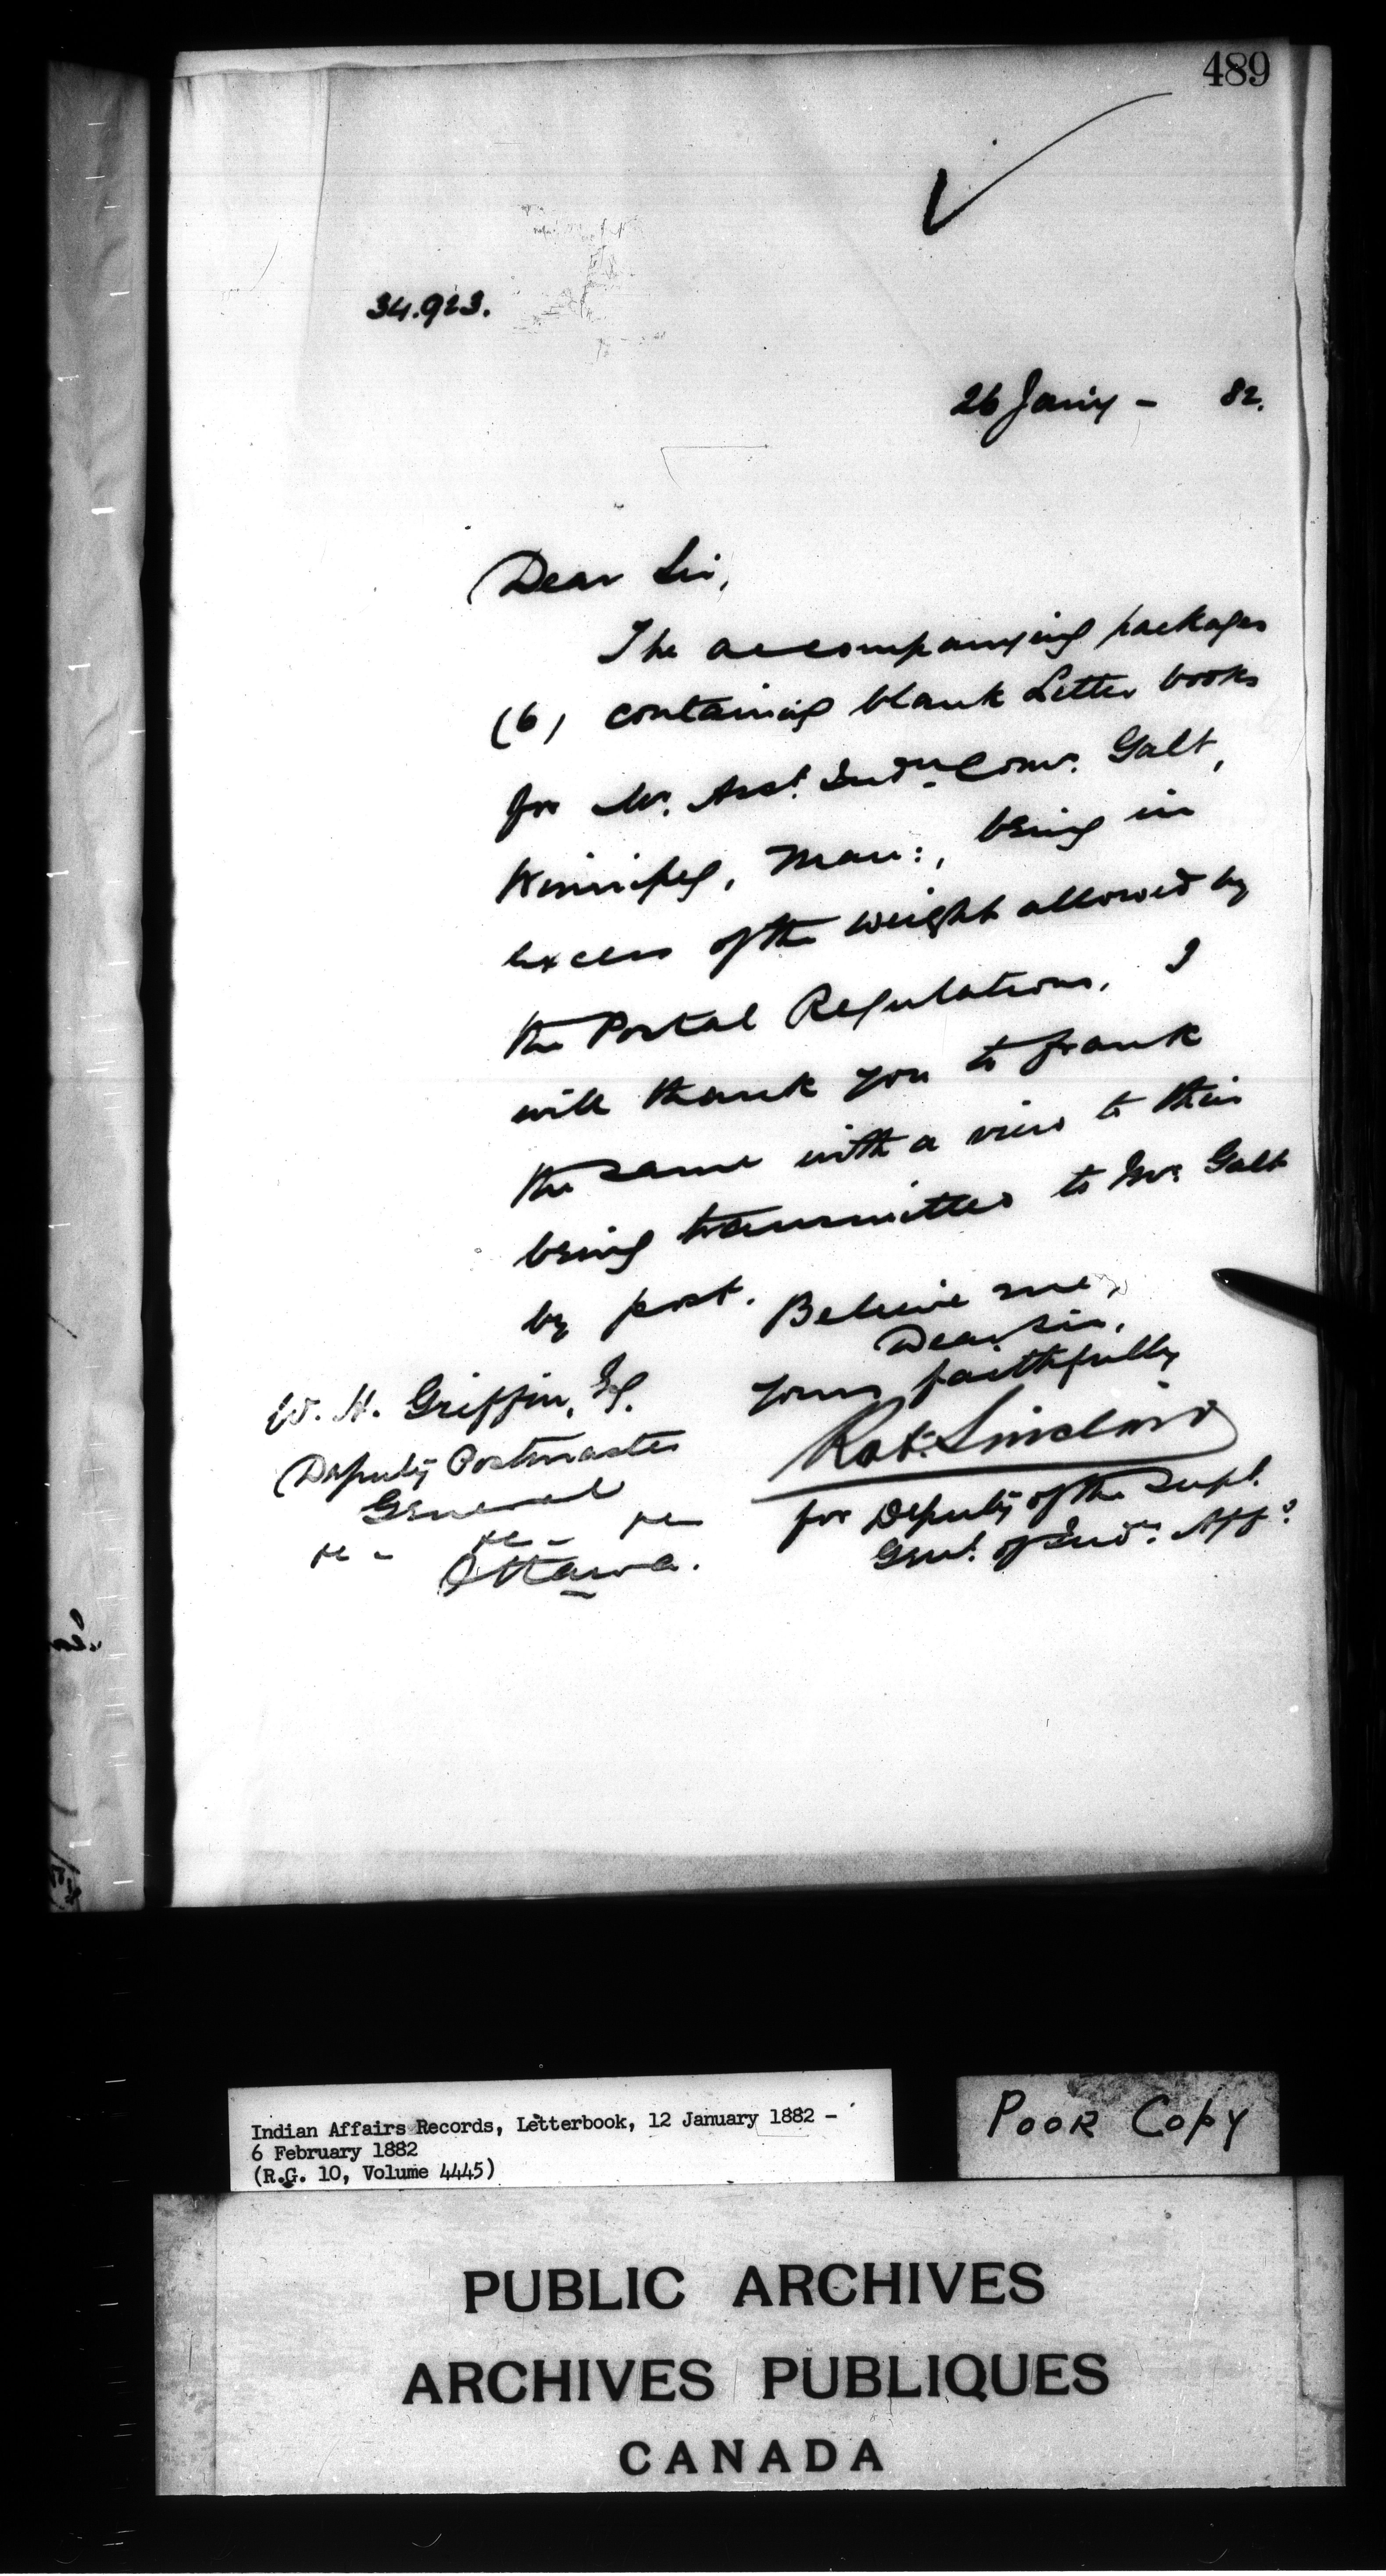 489
34.923.
26 Jany - 82.
Dear Sir,
The accompanying packages
(6) containing blank Letter books
for Mr. Asst. Indn. Comr. Galt,
Winnipeg, Man:, being in
excess of the weight allowed by
the Postal Regulations, I
will thank you to frank
the same with a view to their
being transmitted to Mr. Galt
by post.
Believe me,
Dear Sir,
Yours faithfully
Robt. Sinclair
for Deputy of the Supt.
Genl. of Indn. Affs.
W. H. Griffin, Esq.
Deputy Postmaster
General
&c - &c - &c
Ottawa.
Indian Affairs Records, Letterbook, 12 January 1882 -
6 February 1882
(R.G. 10, Volume 4445)
POOR COPY
PUBLIC ARCHIVES
ARCHIVES PUBLIQUES
CANADA